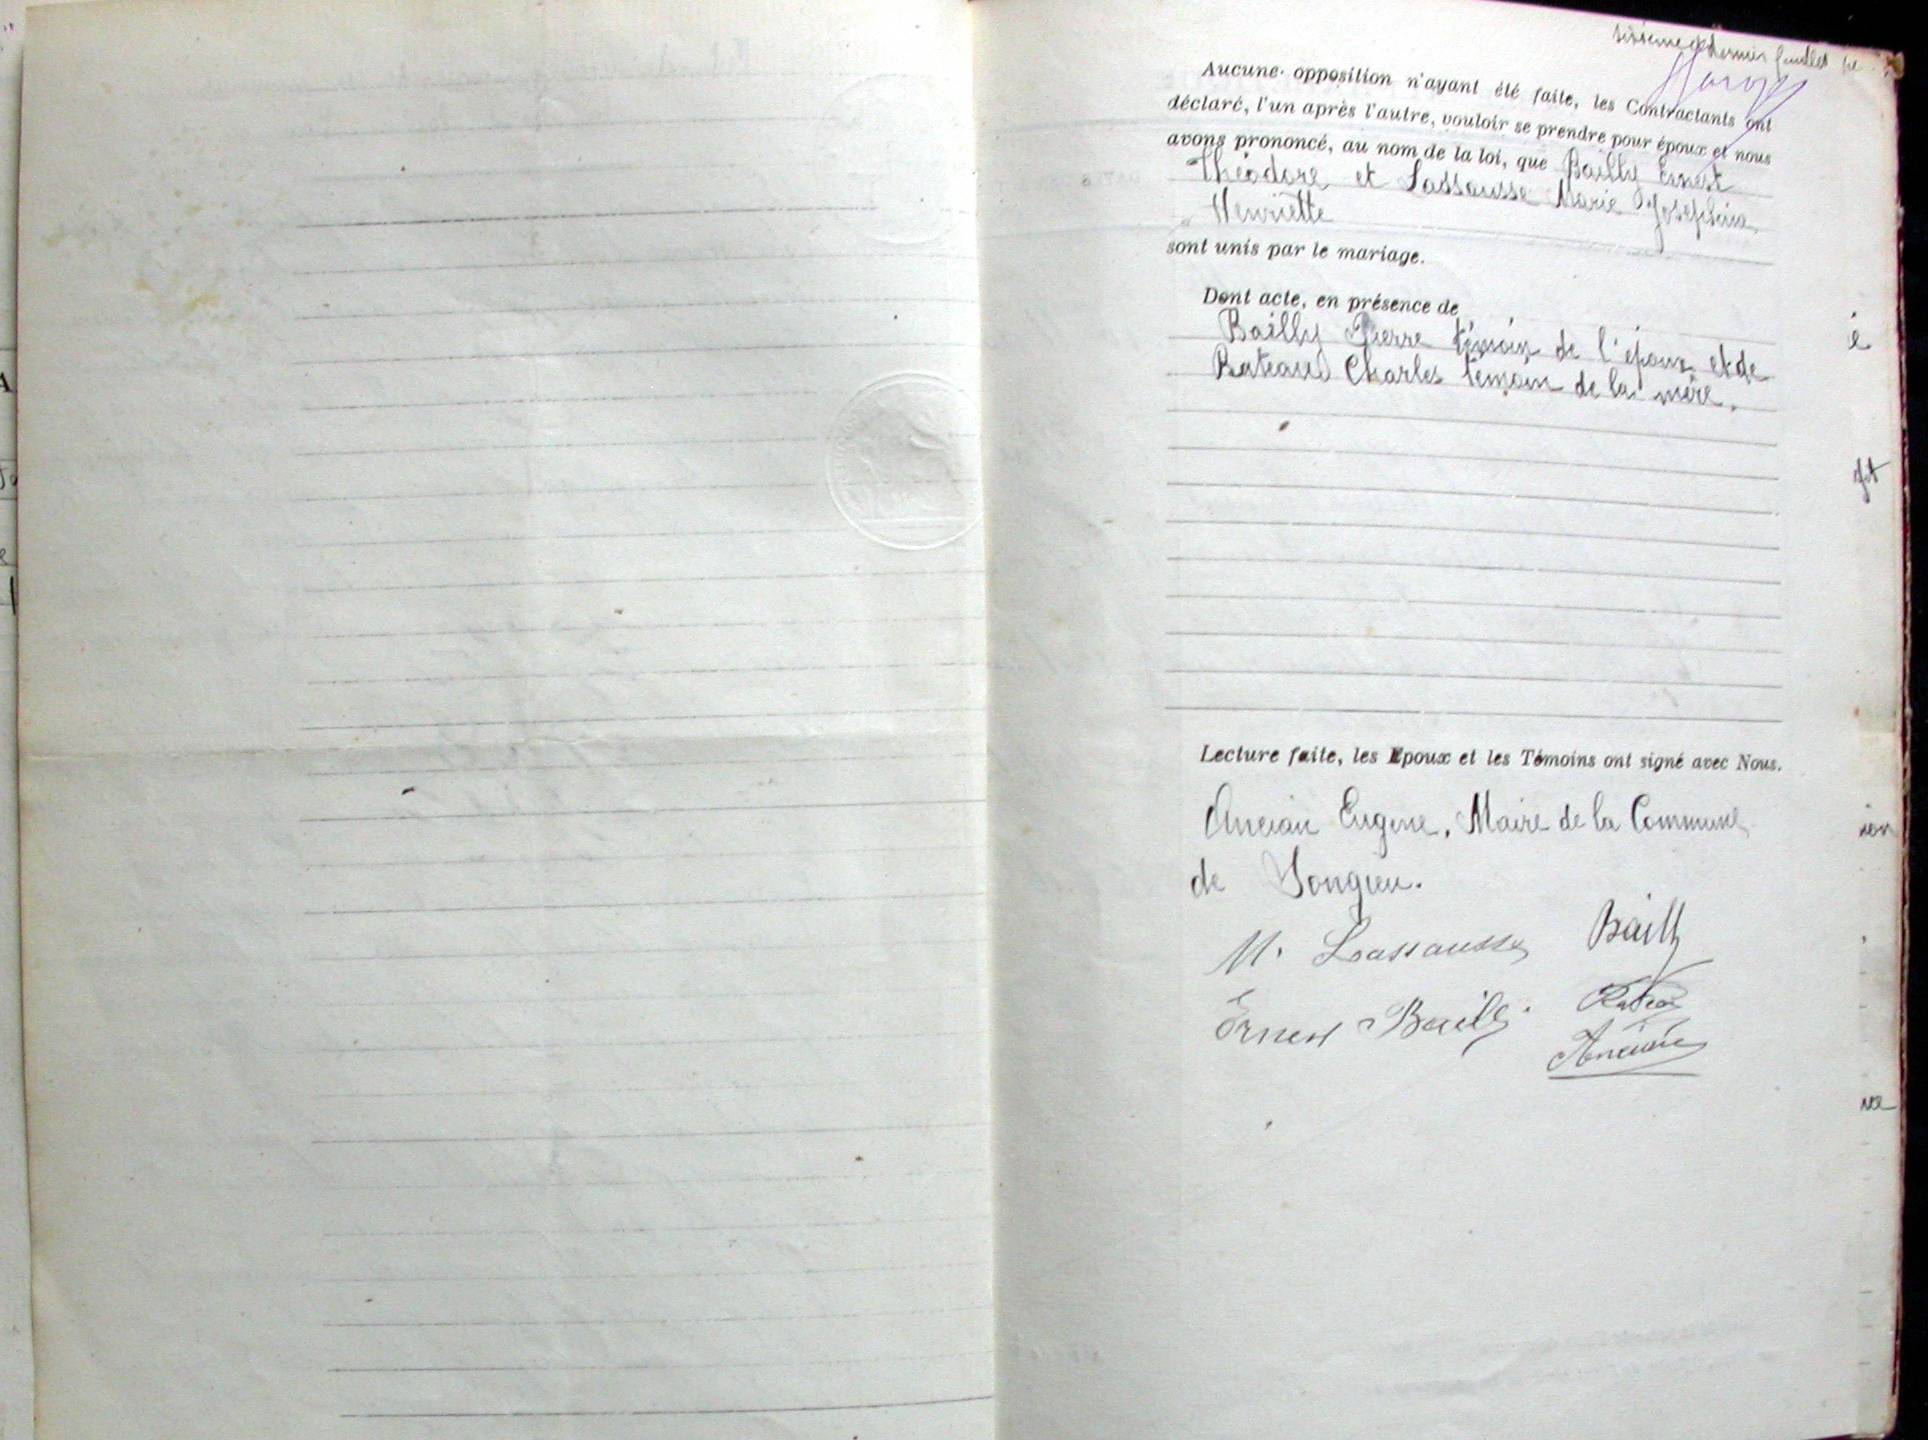 sixième et dernier feuillet
Aucune opposition n'ayant été faite, les Contractants ont
déclaré, l'un après l'autre, vouloir se prendre pour époux et nous
avons prononcé, au nom de la loi, que Bailly Ernest
Théodore et Lassausse Marie Joséphine
Henriette
sont unis par le mariage.
Dont acte, en présence de
Bailly Pierre témoin de l'époux et de
Rateau Charles témoin de la mère.
Lecture faite, les Epoux et les Témoins ont signé avec Nous.
Ancian Eugène, Maire de la Commune
de Songieu.
M. Lassausse Bailly
Ernest Bailly